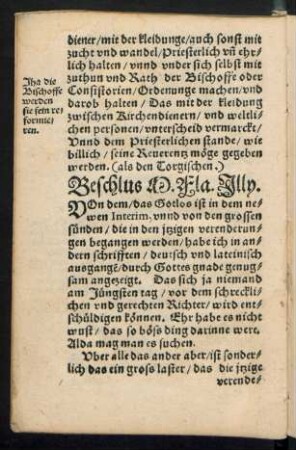 diener/mit der kleidunge/auch sonst mit
zucht vnd wandel/Priesterlich vñ ehr⸗
lich halten / vnnd vnder sich selbst mit
zuthun vnd Rath der Bischoffe oder
Consistorien/Ordenunge machen/vnd
darob halten / Das mit der kleidung
zwischen Kirchendienern/vnd weltli⸗
chen personen/vnterscheid vermarckt/
Vnnd dem Priesterlichen stande/wie
billich / seine Reuerentz möge gegeben
werden. (als den Torgischen.)
Jha die
Bischoffe
werden
sie fein re⸗
formie⸗
ren.
Beschlus M. Fla. Illy.
VOn dem/das Gotlos ist in dem ne⸗
wen Interim, vnnd von den grossen
sünden/ die in den jtzigen verenderun⸗
gen begangen werden/ habe ich in an⸗
dern schrifften / deutsch vnd lateinisch
ausgangē/durch Gottes gnade genug⸗
sam angezeigt. Das sich ja niemand
am Jüngsten tag / vor dem schreckli⸗
chen vnd gerechten Richter/ wird ent⸗
schüldigen können. Ehr habe es nicht
wust / das so böss ding darinne were.
Alda mag man es suchen.
Vber alle das ander aber/ist sonder⸗
lich das ein gross laster/ das die jtzige
verende⸗